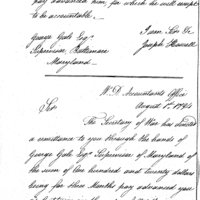 pay advanced him, for which he will accept
to be accountable.
I am Sir &c
George Gale Esqr Joseph Howell
Supervisor, Baltimore
Maryland
W. D. Accountants Office
August 1st 1794
Sir
The Secretary of War has directed
a remittance to you through the hands of
George Gale Esqr Supervisor of Maryland of
the sum of two hundred and twenty dollars
being for three Months pay advanced you